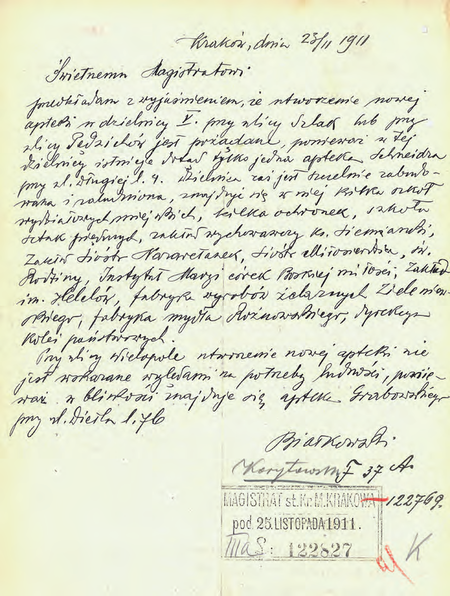 Kraków, dnia 25/11 1911
Świetnemu Magistratowi
przedkładam z wyjaśnieniem, że utworzenie nowej
apteki w dzielnicy V. przy ulicy Szlak lub przy
ulicy Pędzichów jest pożądane, ponieważ w tej
dzielnicy istnieje dotąd tylko jedna apteka Schneidra
przy ul. Długiej l. 4. Dzielnica zaś jest szczelnie zabudo-
wana i zaludniona, znajduje się w niej kilka szkół
wydziałowych miejskich, kilka ochronek, szkoła
sztuk pięknych, zakład wychowawczy ks. Siemaszki,
Zakład Sióstr Nazaretanek, Sióstr Miłosierdzia, św.
Rodziny, Instytut Maryi córek Boskiej miłości, Zakład
im. Helclów, fabryka wyrobów żelaznych Zieleniew-
skiego, fabryka mydła Rożnowskiego, dyrekcya
kolei państwowych.
Przy ulicy Wielopole utworzenie nowej apteki nie
jest wskazane względami na potrzeby ludności, ponie-
waż w bliskości znajduje się apteka Grabowskiego
przy ul. Dietla l. 76
Białkowski
I 37 A
122769.
MAGISTRAT st. Kr. M. KRAKOWA
pod. 25. LISTOPADA 1911.
III a S: 122827
K